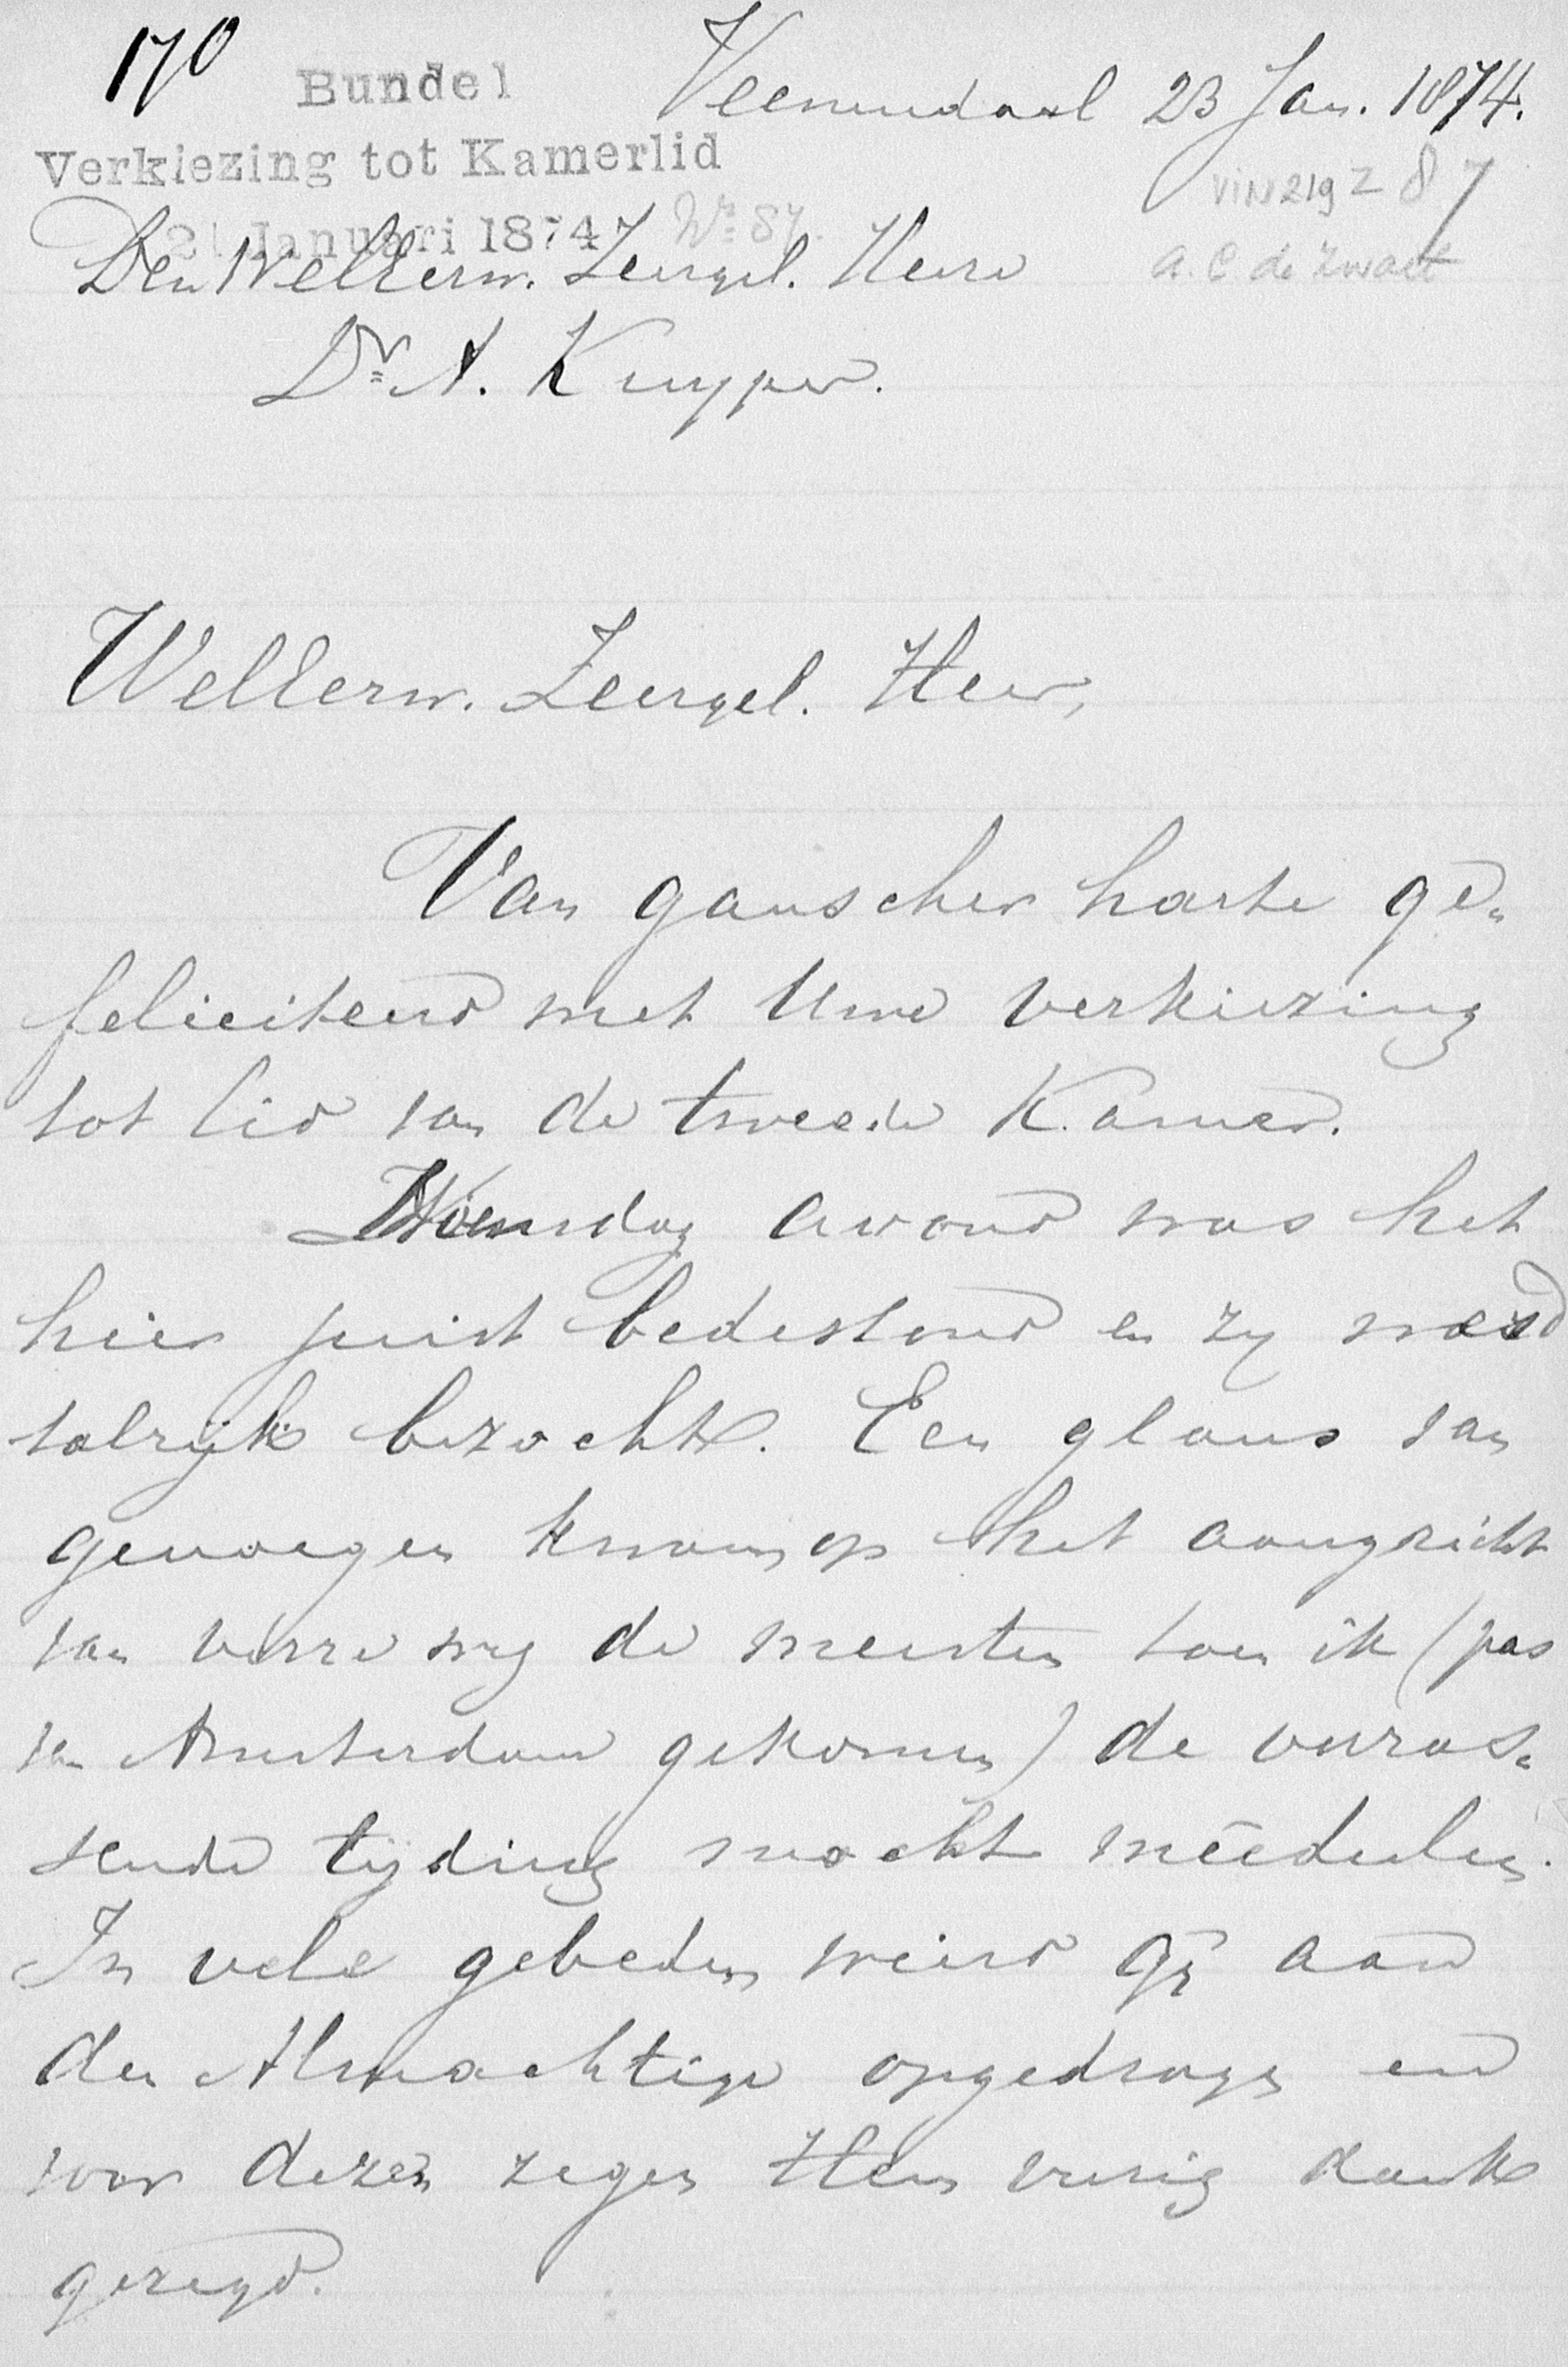 170
Bundel
Verkiezing tot Kamerlid
21 Januari 1874
No 87.
Veenendaal 23 Jan. 1874.
VIN 219 Z 87
A. C de Zwart
Den WelEerw. Zeergel. Heere
Dr A. Kuyper.
WelEerw. Zeergel. Heer,
Van ganscher harte ge-
feliciteerd met Uwe verkiezing
tot lid van de tweede Kamer.
Woensdag avond was het
hier juist bedestond en zij werd
talrijk bezocht. Een glans van
genoegen kwam op het aangezicht
van verre weg de meesten toen ik (pas
van Amsterdam gekomen) de verras-
sende tijding mocht meedeelen.
In vele gebeden wierd Gij aan
den Almachtige opgedragen en
voor dezen zegen Hem vurig dank
gezegd.